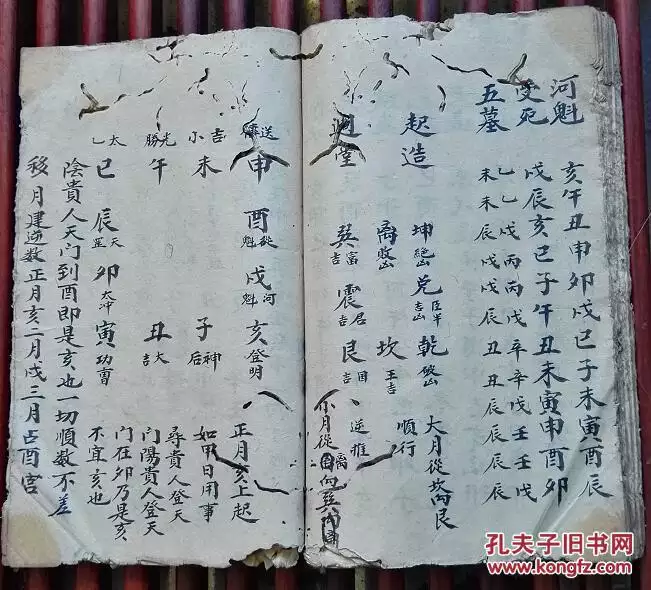 河魁 亥午丑申卯戌巳子未寅酉辰
受死 戌辰亥巳子午丑未寅申酉卯
五墓 乙乙戊丙丙戊辛辛戊壬壬戊
未未辰戌戌辰丑丑辰辰辰辰
起造 坤絶山 兌吉山 乾敗山 大月從坎向艮
離敗山 坎王吉 順行
堂 巽富吉 震居吉 艮吉 逆推
小月從離向巽
申 酉從魁 戌河魁 亥登明 正月亥上起
小吉 未 子神后 如甲日用事
勝光 午 丑大吉 尋貴人登天
太乙 巳 辰天罡 卯太冲 寅功曹 門陽貴人登天
門在卯乃是亥
不宜亥也
陰貴人天門到酉即是亥也一切順數不差
移月建逆數正月亥二月戌三月占酉宮
孔夫子旧书网
www.kongfz.com